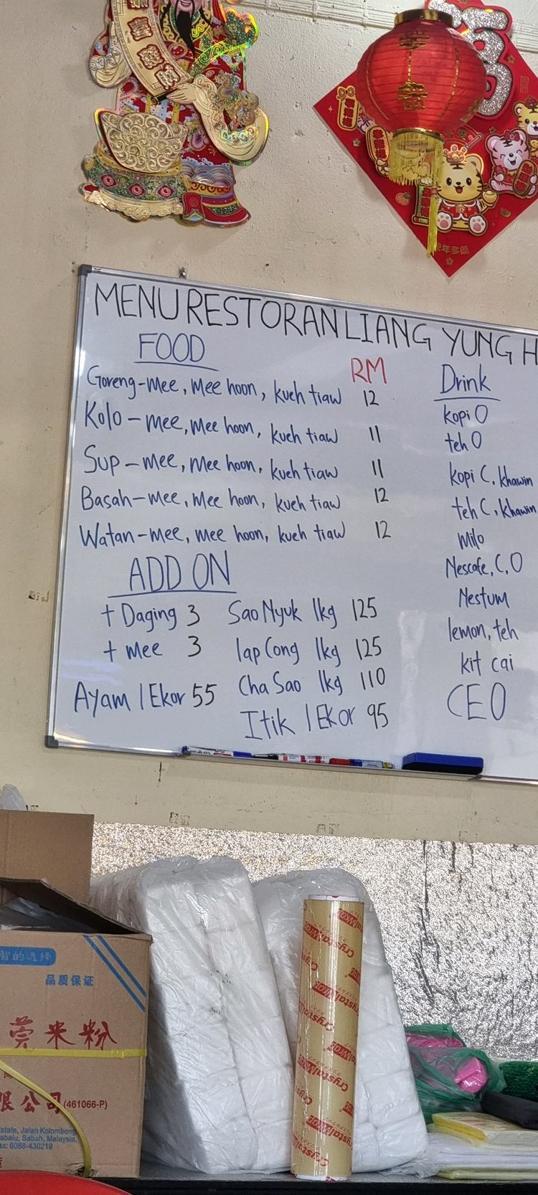 MENU RESTORAN LIANG YUNG H
FOOD
RM
Goreng-mee, mee hoon, kueh tiaw 12
Kolo-mee, mee hoon, kueh tiaw 11
Sup-mee, mee hoon, kueh tiaw 11
Basah-mee, mee hoon, kueh tiaw 12
Watan-mee, mee hoon, kueh tiaw 12
ADD ON
+ Daging 3
+ mee 3
Ayam 1 Ekor 55
Sao Nyuk 1kg 125
lap Cong 1kg 125
Cha Sao 1kg 110
Itik 1 Ekor 95
Drink
kopi O
teh O
kopi C, khawin
teh C, khawin
milo
Nescafe, C, O
Nestum
lemon, teh
kit cai
CEO
的选择
品质保证
米粉
限公司 (461066-P)
state, Jalan Kolombon
abalu, Sabah, Malaysia.
ax: 6088-430219
CrystalWrap